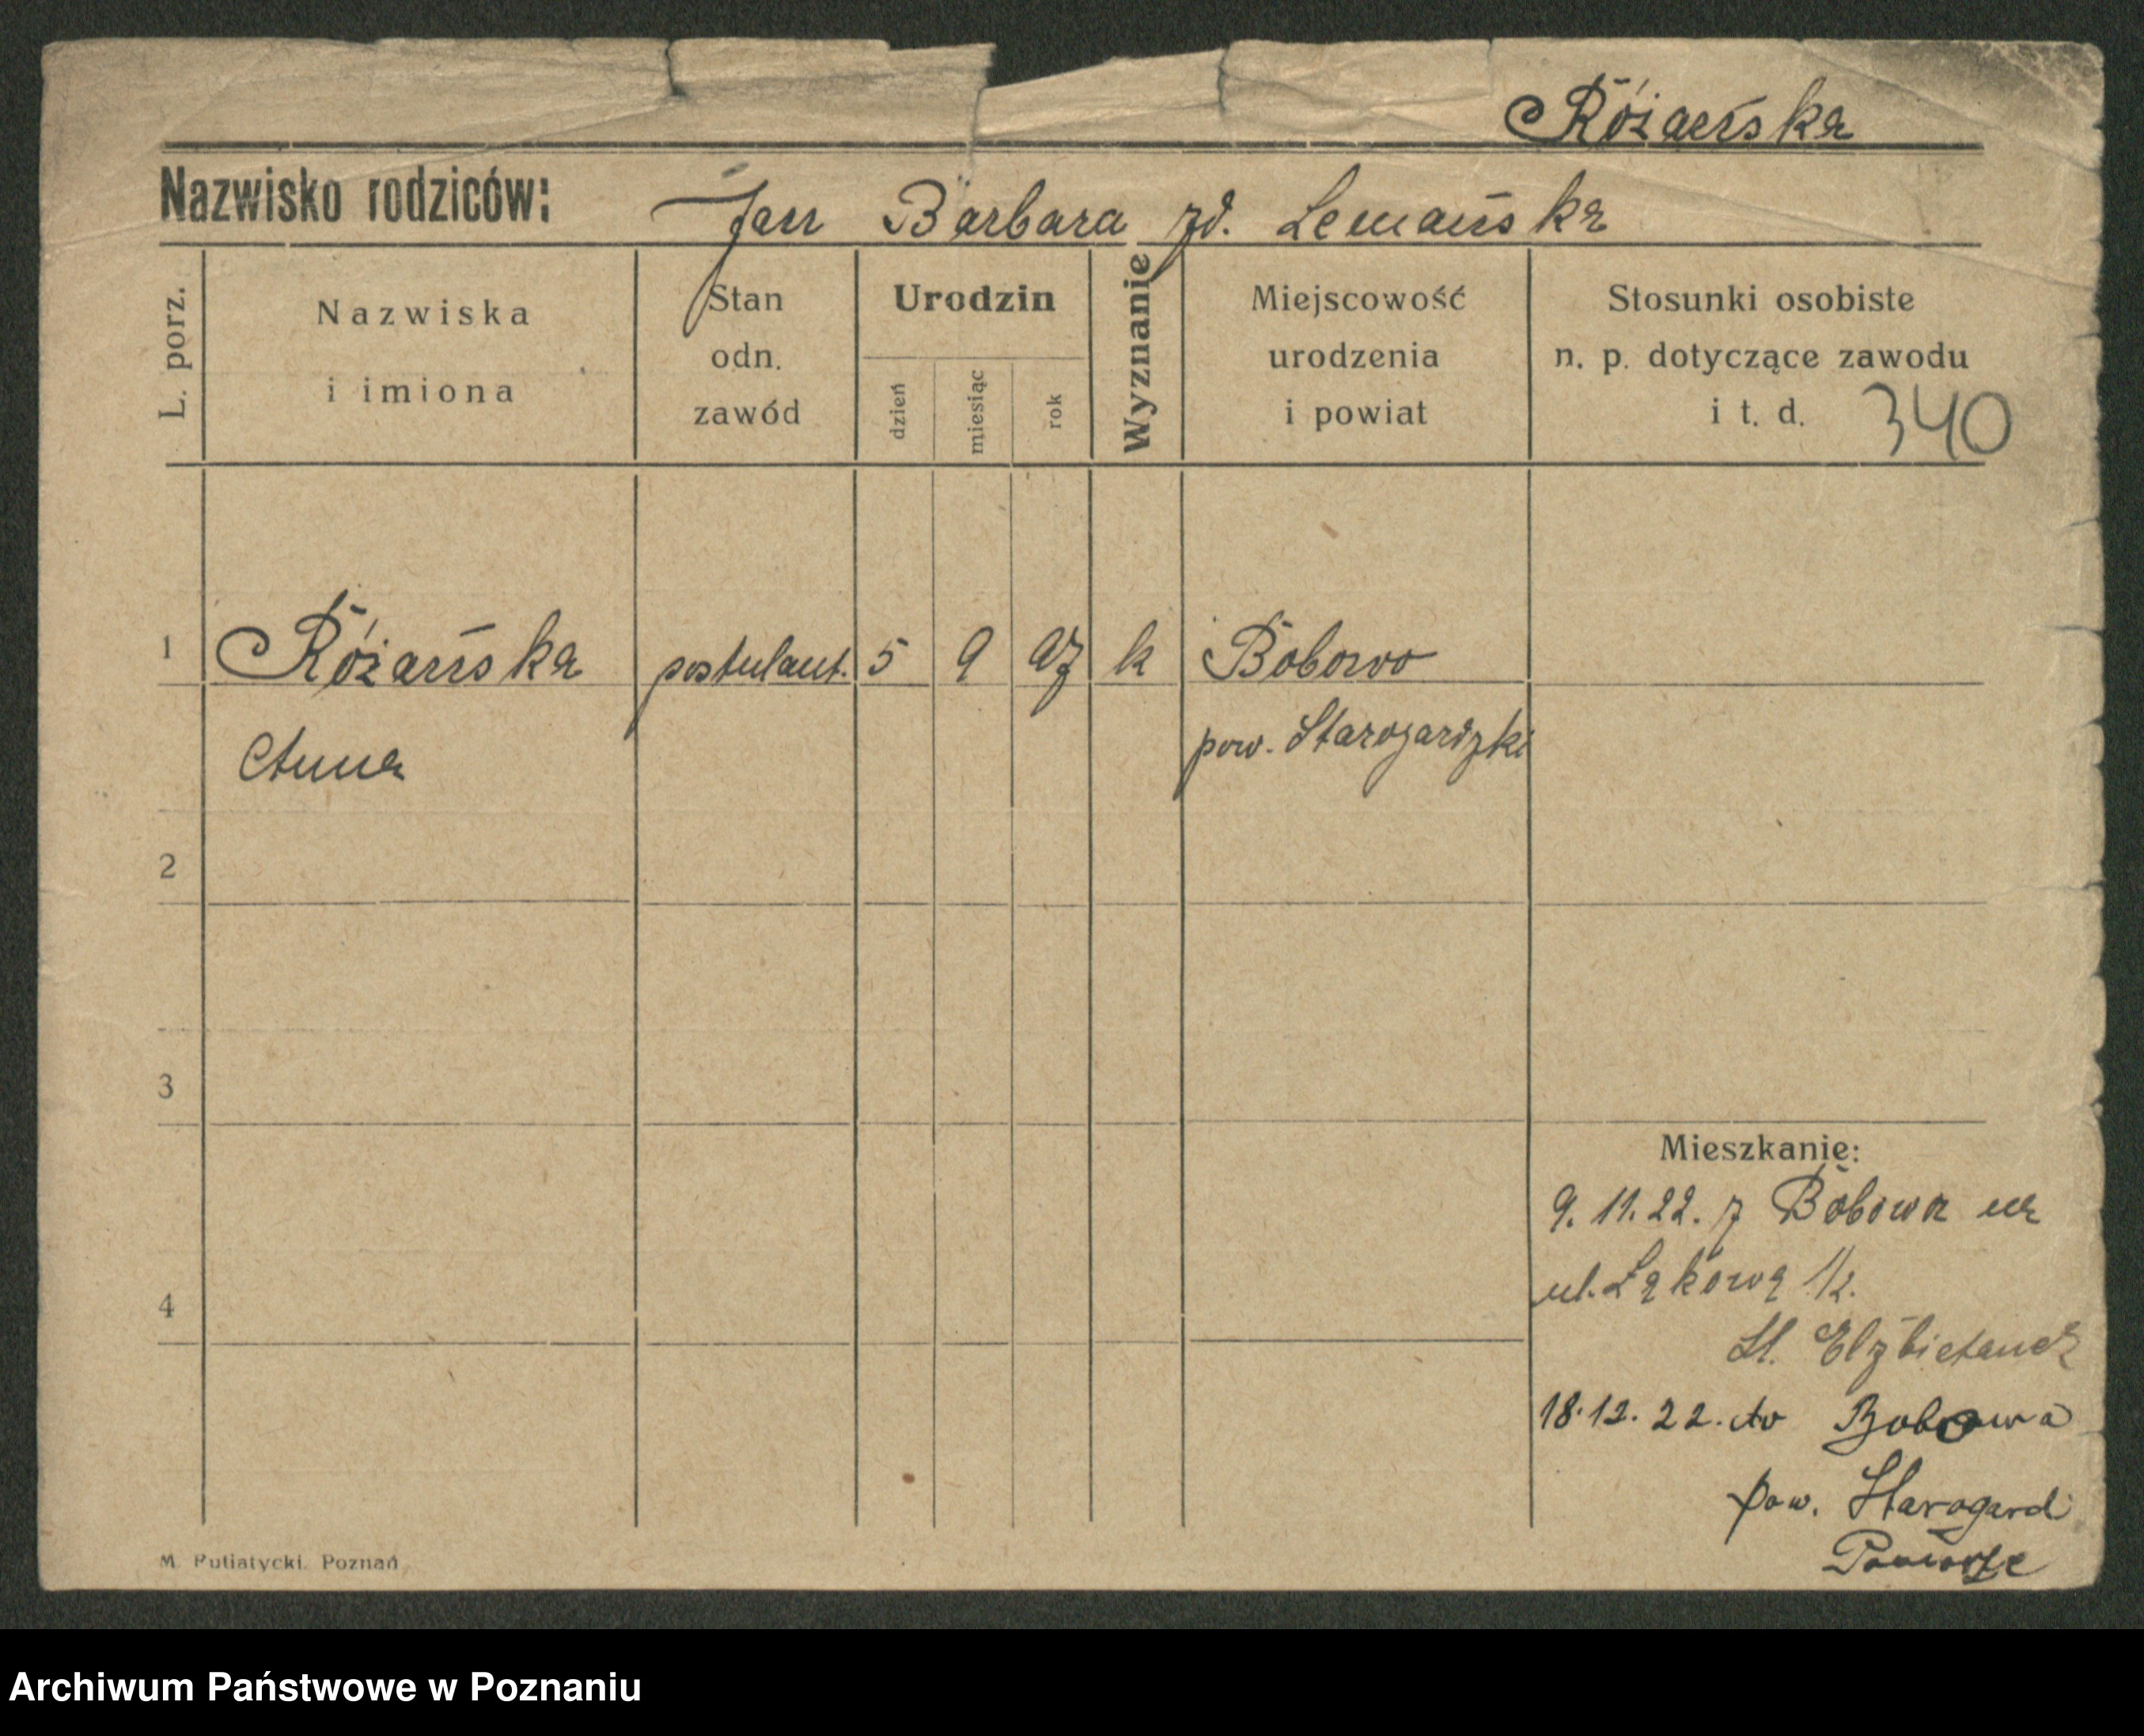 Różańska
Nazwisko rodziców: Jan Barbara zd. Lemańska
L. porz.
Nazwiska i imiona
Stan odn. zawód
Urodzin
dzień
miesiąc
rok
Wyznanie
Miejscowość urodzenia i powiat
Stosunki osobiste
n. p. dotyczące zawodu
i t. d. 340
1 Różańska postulant. 5 9 97 k Bobowo
Anna pow. Starogardzki
2
3
4
Mieszkanie:
9. 11. 22. z Bobowa na
ul. Łąkową 1/2.
St. Elżbietanek
18. 12. 22. do Bobowa
pow. Starogard
Pomorze
M. Putiatycki. Poznań
Archiwum Państwowe w Poznaniu